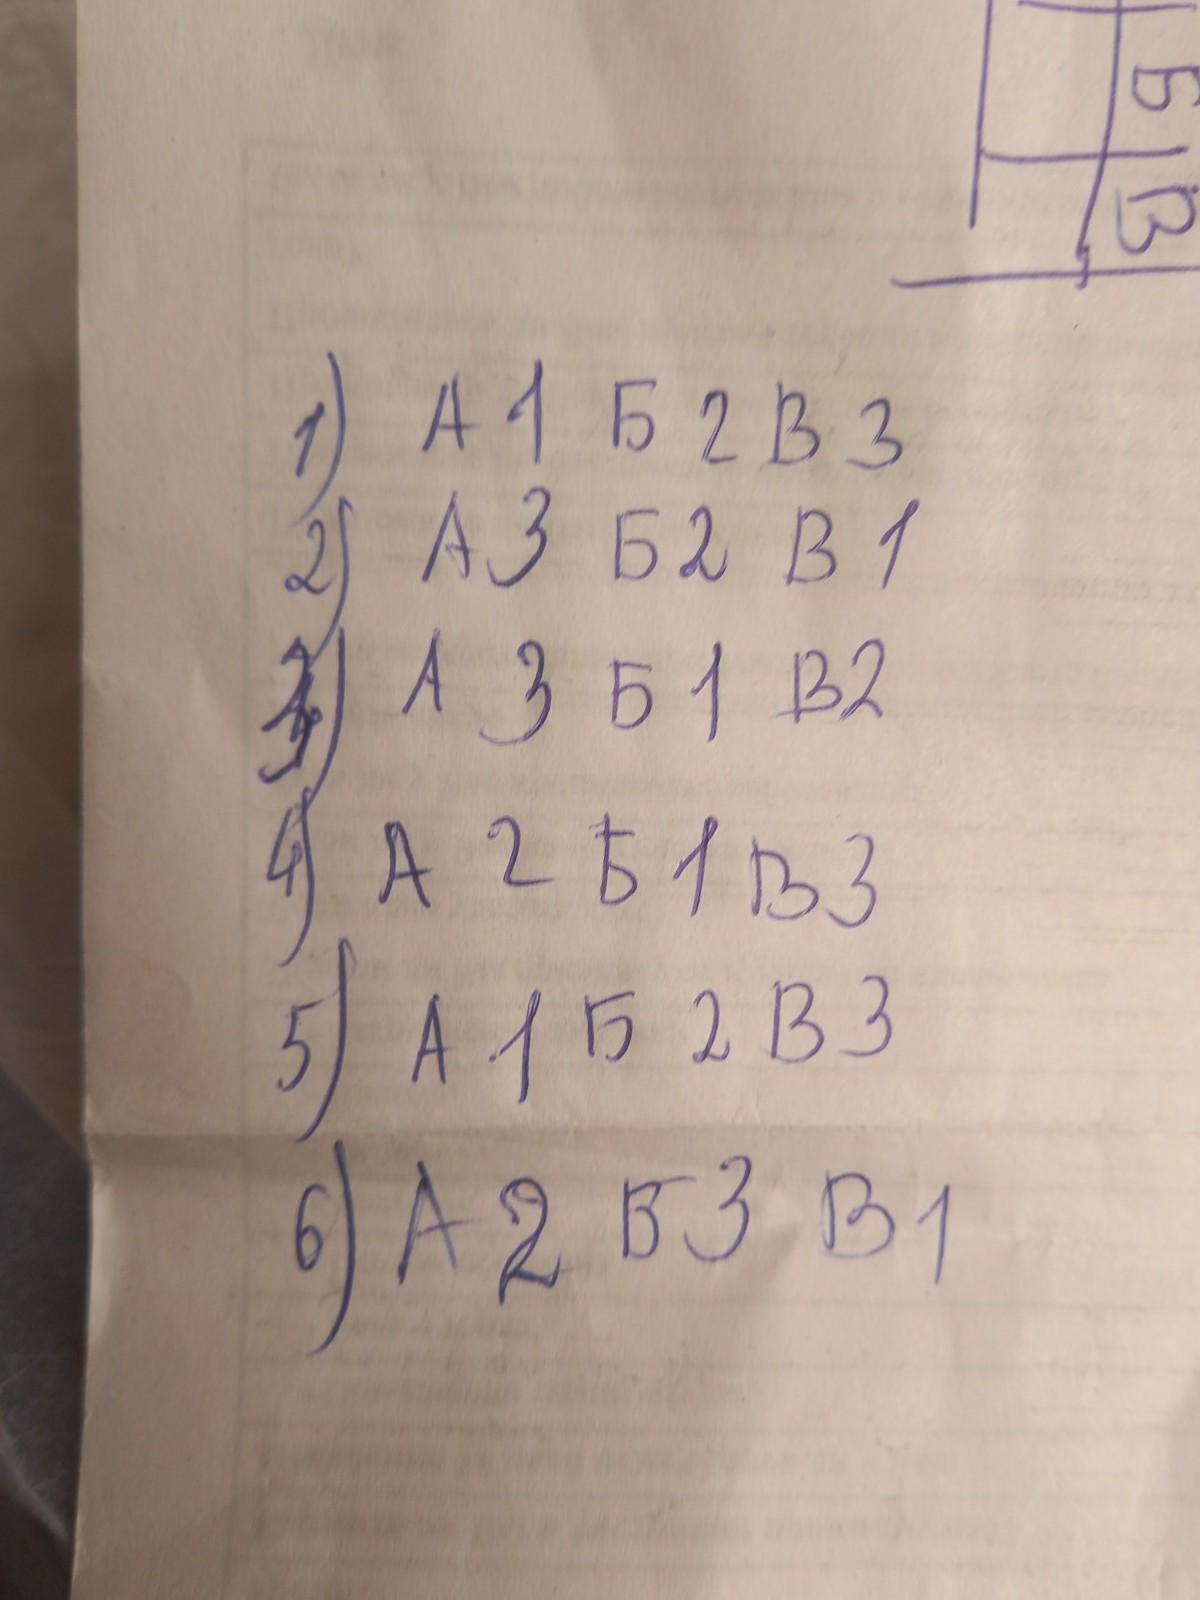 Б
В
1) А 1 Б 2 В 3
2) А 3 Б 2 В 1
3) А 3 Б 1 В 2
4) А 2 Б 1 В 3
5) А 1 Б 2 В 3
6) А 2 Б 3 В 1